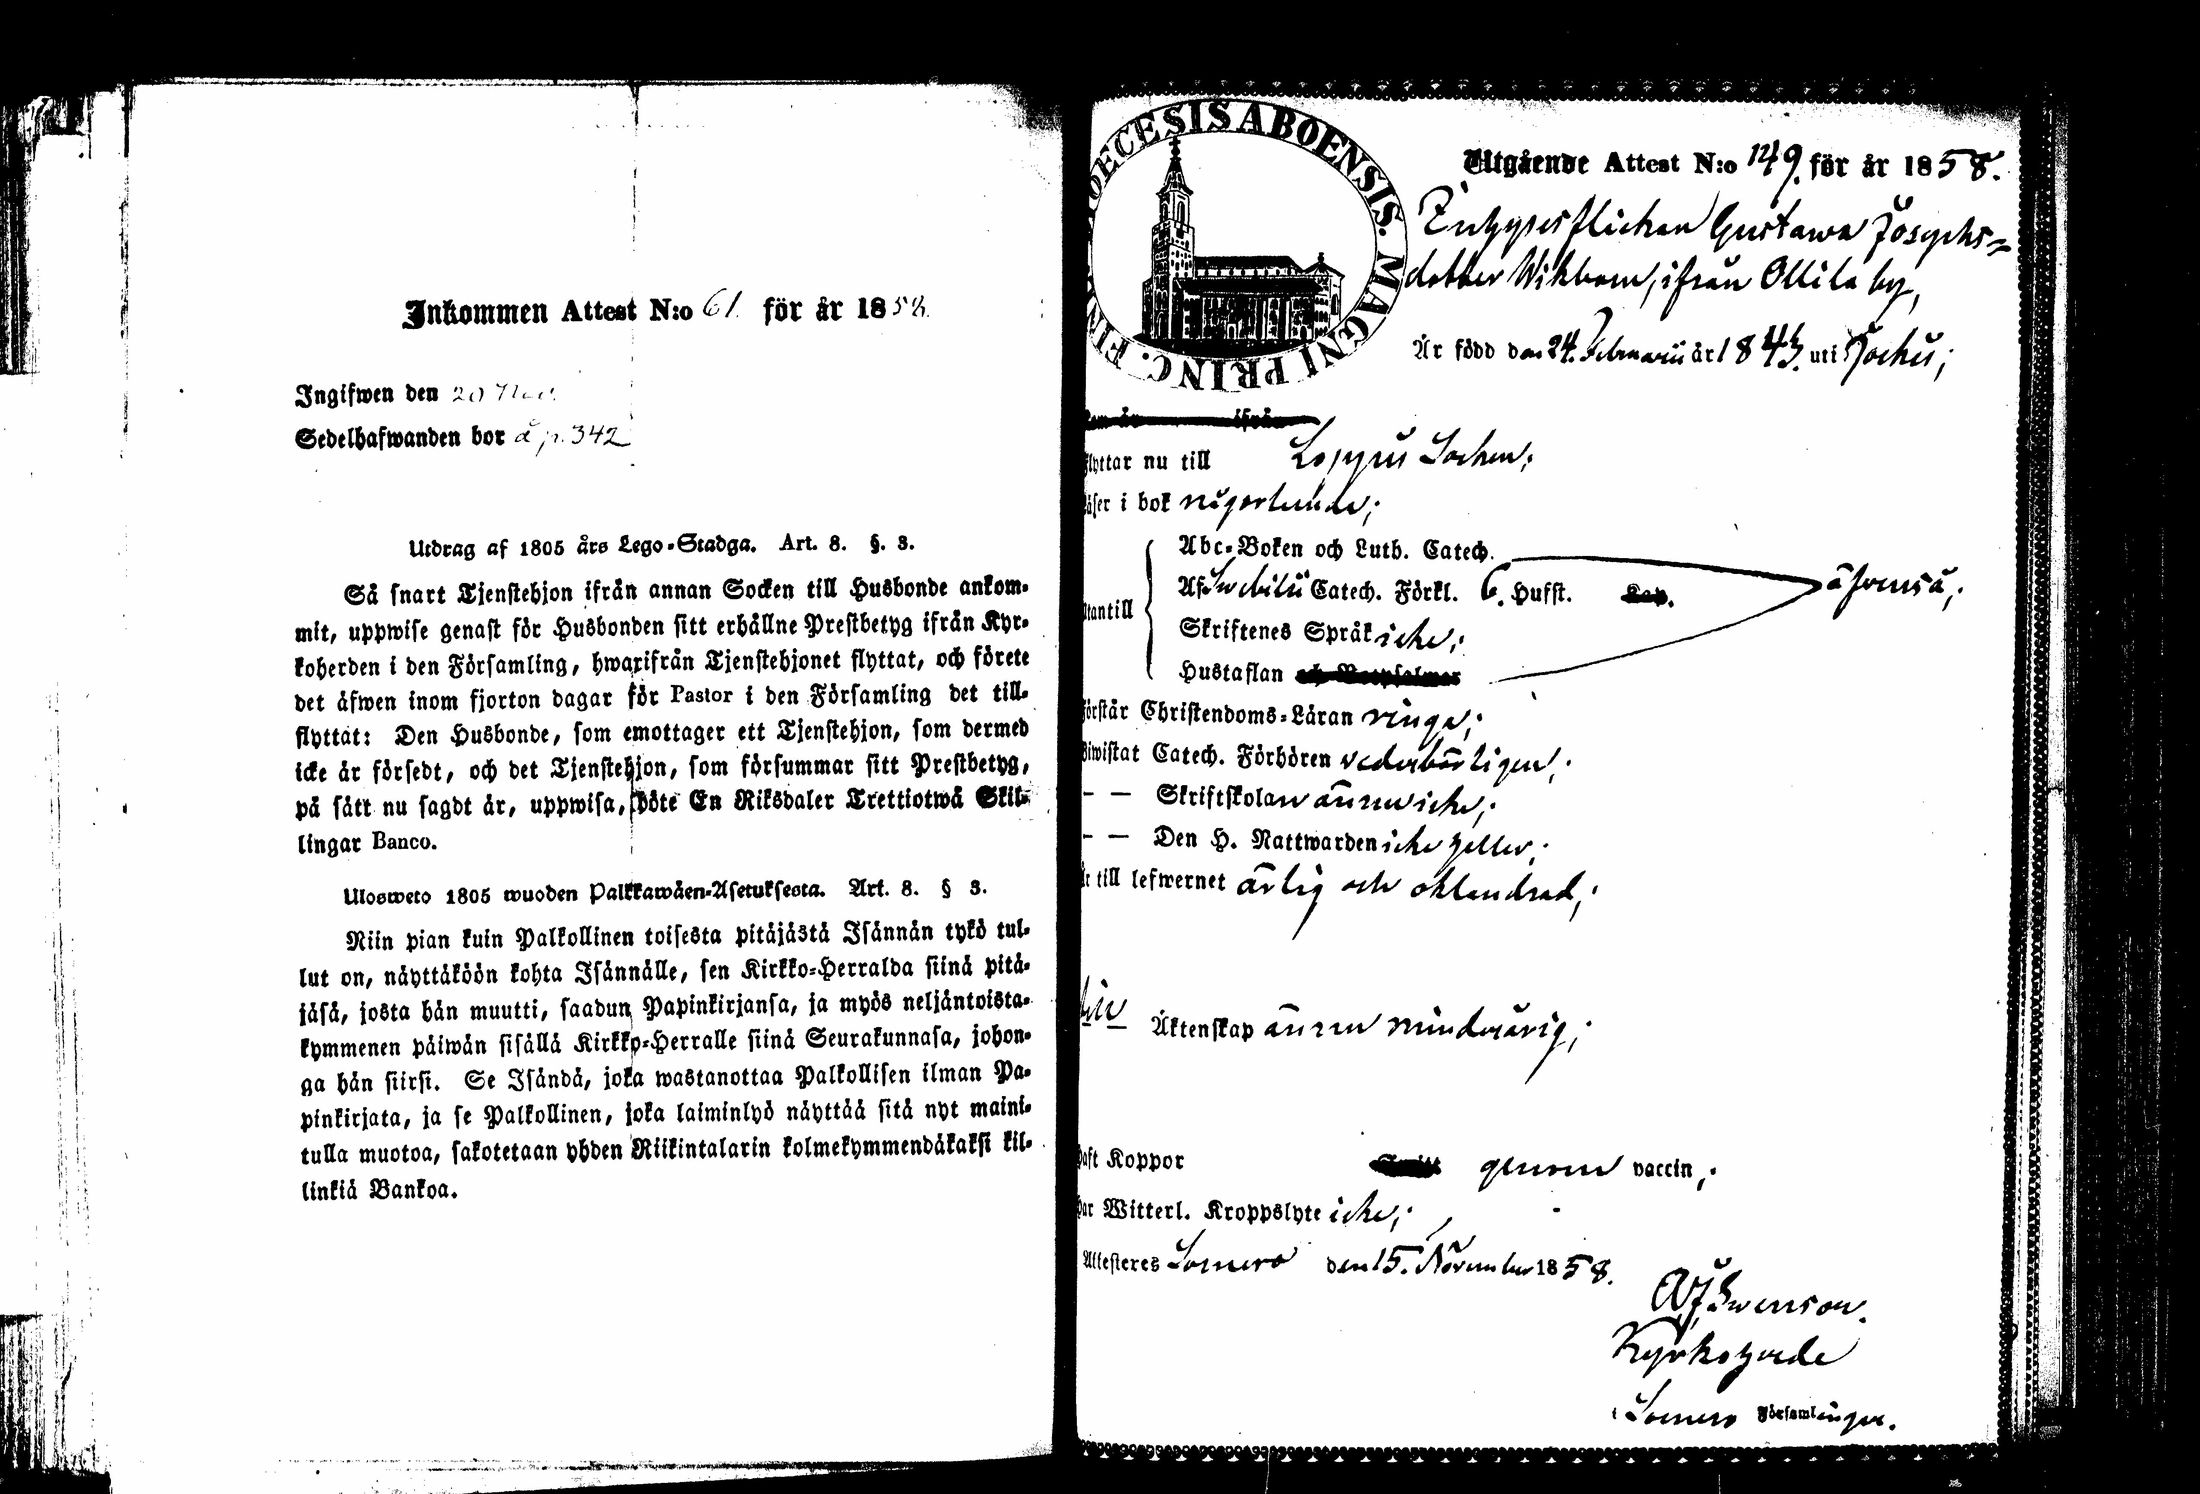 Inkommen Attest N:o 61. för år 1858.
Ingifwen den 20 Nov.
Sedelhafwanden bor å p. 342
Utdrag af 1805 års Lego-Stadga. Art. 8. §. 3.
Så snart Tjenstehjon ifrån annan Socken till Husbonde ankom-
mit, uppwise genast för Husbonden sitt erhållne Prestbetyg ifrån Kyr-
koherden i den Församling, hwarifrån Tjenstehjonet flyttat, och förete
det äfwen inom fjorton dagar för Pastor i den Församling det till-
flyttat: Den Husbonde, som emottager ett Tjenstehjon, som dermed
icke är försedt, och det Tjenstehjon, som försummar sitt Prestbetyg,
på sätt nu sagdt är, uppwisa, böte En Riksdaler Trettiotwå Skil-
lingar Banco.
Ulosweto 1805 wuoden Palkkawäen-Asetuksesta. Art. 8. § 3.
Niin pian kuin Palkollinen toisesta pitäjästä Isännän tykö tul-
lut on, näyttäköön kohta Isännälle, sen Kirkko-Herralda siinä pitä-
jäsä, josta hän muutti, saadun Papinkirjansa, ja myös neljäntoista-
kymmenen päiwän sisällä Kirkko-Herralle siinä Seurakunnasa, johon-
ga hän siirsi. Se Isändä, joka wastanottaa Palkollisen ilman Pa-
pinkirjata, ja se Palkollinen, joka laiminlyö näyttää sitä nyt maini-
tulla muotoa, sakotetaan yhden Riikintalarin kolmekymmendäkaksi kil-
linkiä Bankoa.
DIOECESIS ABOENSIS. MAGNI PRINC. FIN
Utgående Attest N:o 149. för år 1858.
Inhysesflickan Gustawa Josephs-
dotter Wikbom, ifrån Ollila by,
Är född den 24. Februarii år 1843. uti Jockis;
som är ifrån
flyttar nu till Loppis Socken;
läser i bok någorlunda;
Abc-Boken och Luth. Catech.
Af Swebilii Catech. Förkl. 6. Hufst. Kap. åhörnså;
utantill
Skriftenes Språk icke;
Hustaflan och Botpsalmer
förstår Christendoms-Läran ringa;
biwistat Catech. Förhören vederbörligen;
— — Skriftskolan ännu icke;
— — Den H. Nattwarden icke heller;
Är till lefwernet ärlig och oklandrad;
till Äktenskap ännu minderårig;
haft Koppor genom vaccin;
har Witterl. Kroppslyte icke;
Attesteres Somero den 15. November 1858.
Swenson.
Kyrkoherde
i Somero Församlingar.